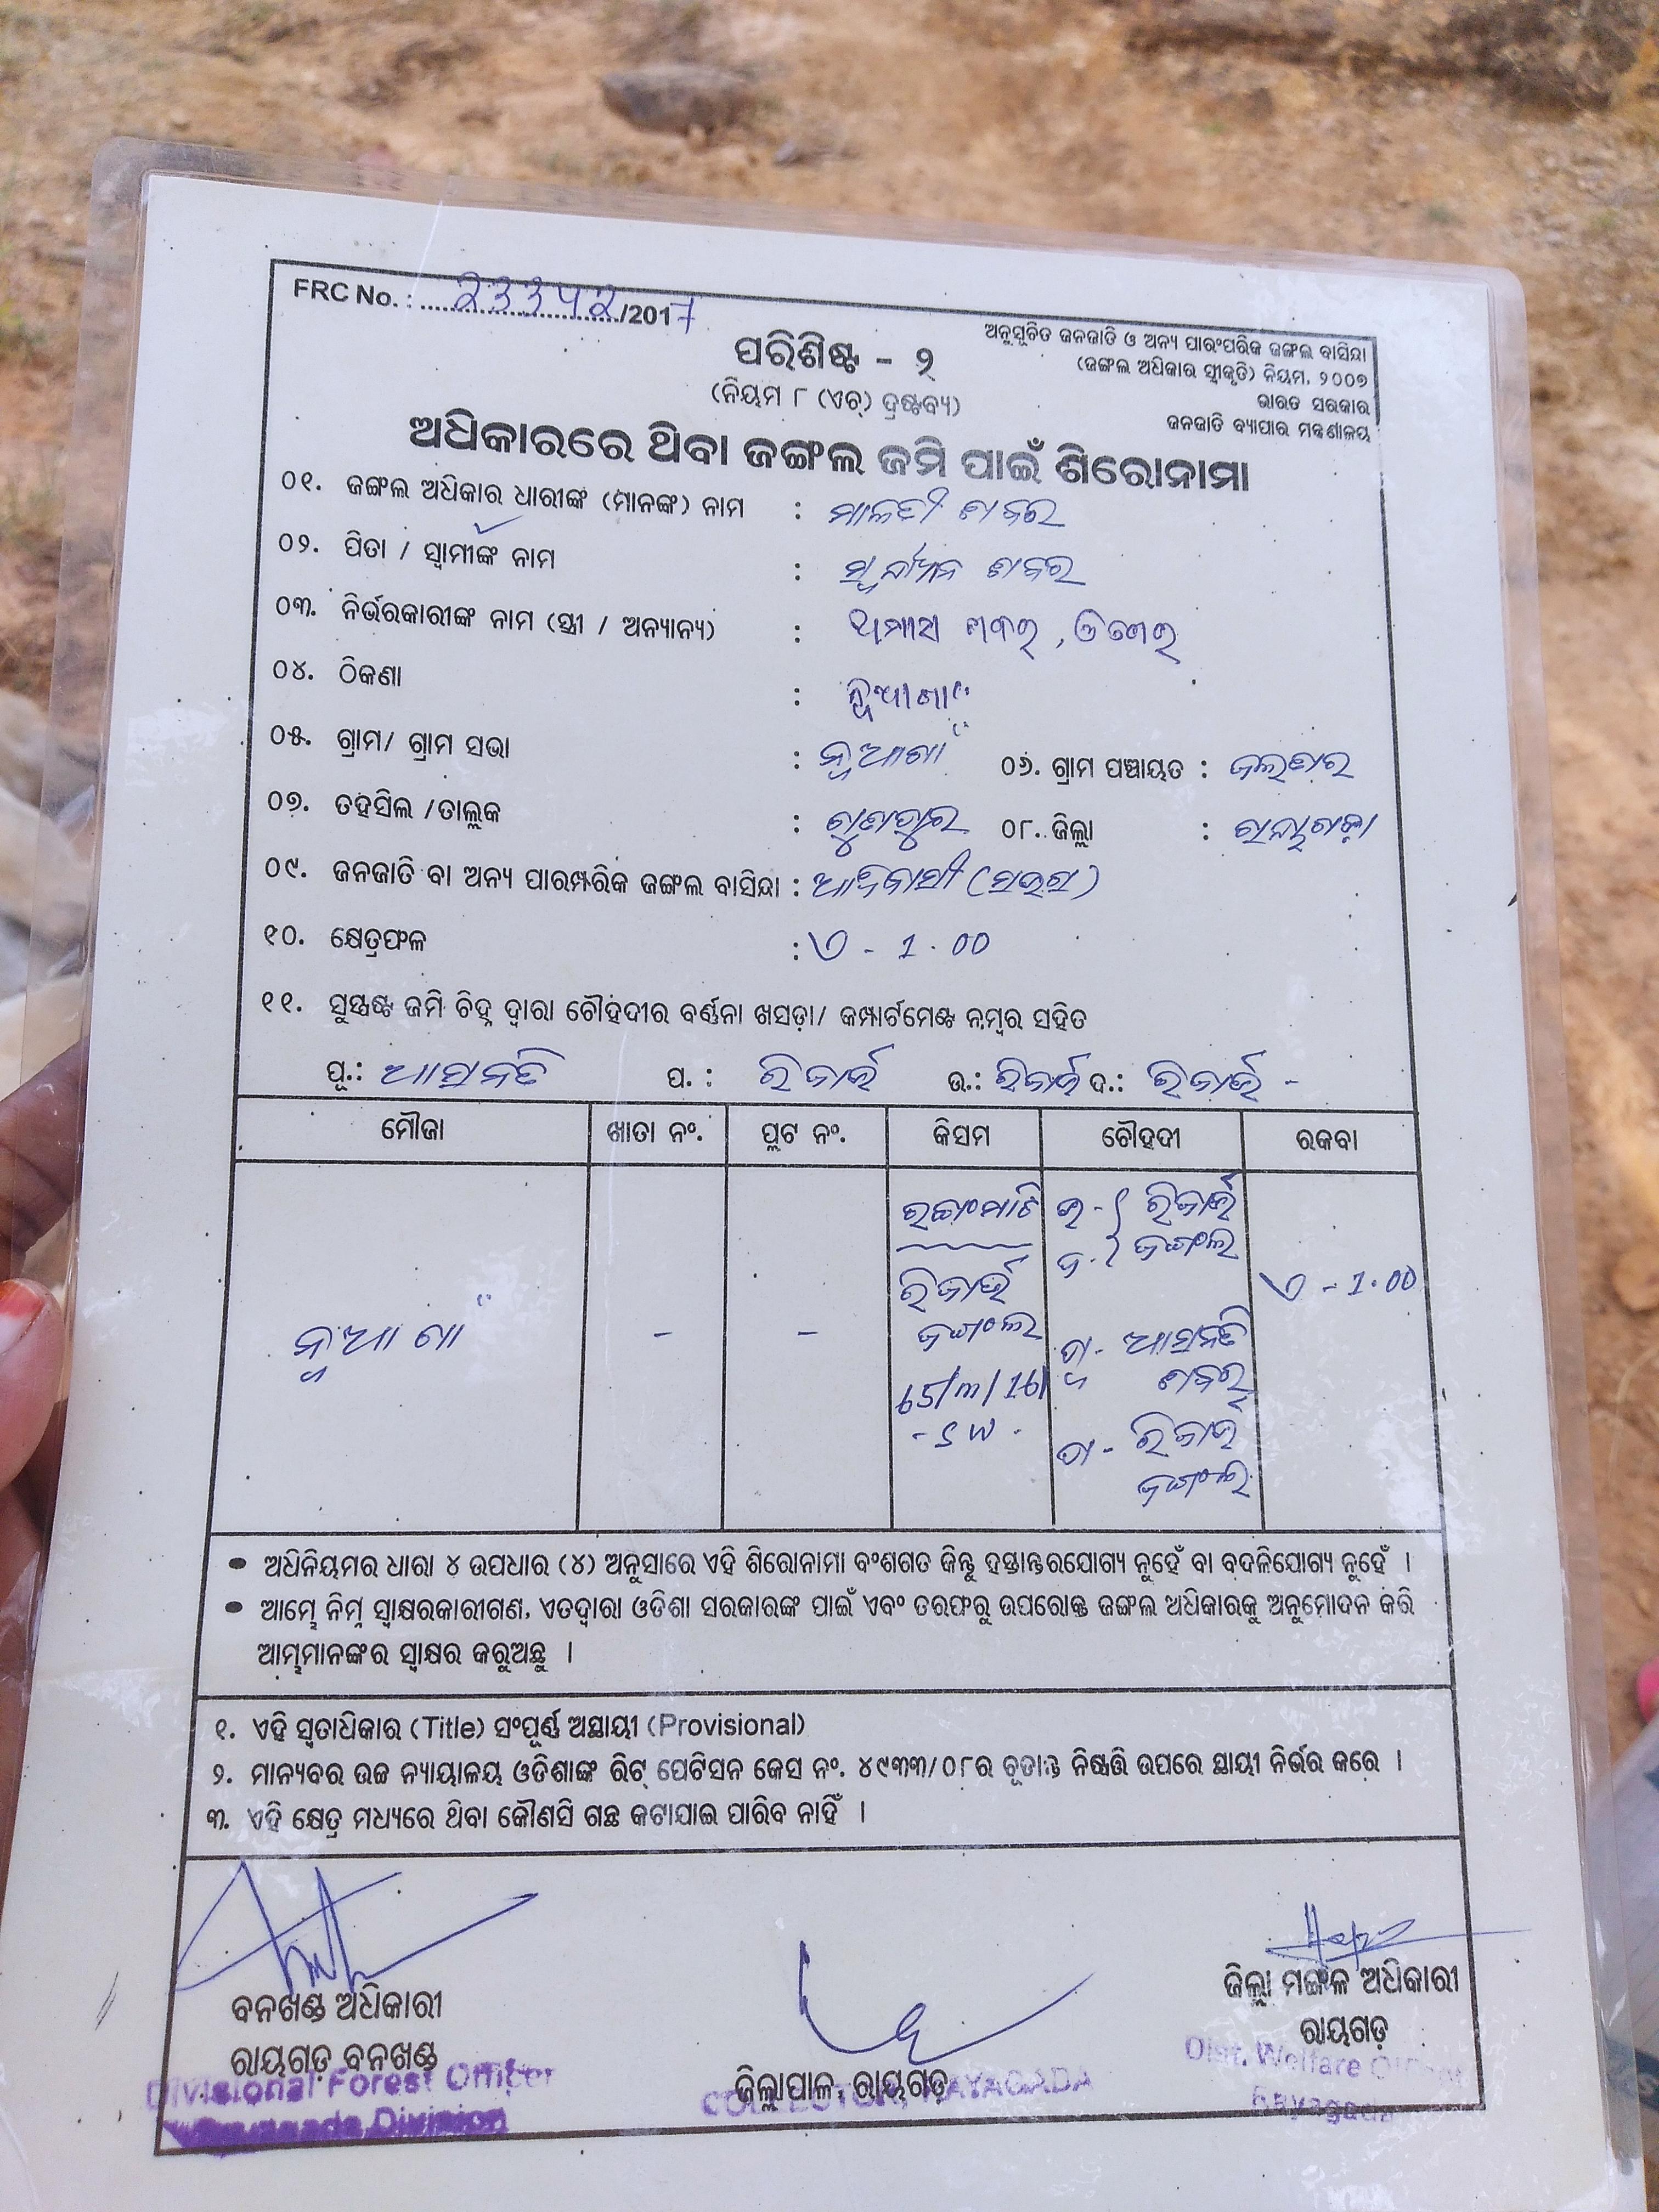 FRC No. : 23342/2017
ଅନୁସୂଚିତ ଜନଜାତି ଓ ଅନ୍ୟ ପାରଂପରିକ ଜଙ୍ଗଲ ବାସିନ୍ଦା
(ଜଙ୍ଗଲ ଅଧିକାର ସ୍ୱୀକୃତି) ନିୟମ, ୨୦୦୭
ଭାରତ ସରକାର
ଜନଜାତି ବ୍ୟାପାର ମନ୍ତ୍ରଣାଳୟ
ପରିଶିଷ୍ଟ - ୨
(ନିୟମ ୮ (ଏଚ୍) ଦ୍ରଷ୍ଟବ୍ୟ)
ଅଧିକାରରେ ଥିବା ଜଙ୍ଗଲ ଜମି ପାଇଁ ଶିରୋନାମା
୦୧. ଜଙ୍ଗଲ ଅଧିକାର ଧାରୀଙ୍କ (ମାନଙ୍କ) ନାମ : ମାଳତୀ ଶବର
୦୨. ପିତା / ସ୍ୱାମୀଙ୍କ ନାମ : ଶବର
୦୩. ନିର୍ଭରକାରୀଙ୍କ ନାମ (ସ୍ତ୍ରୀ / ଅନ୍ୟାନ୍ୟ) :
୦୪. ଠିକଣା : ନୂଆଗାଁ
୦୫. ଗ୍ରାମ/ ଗ୍ରାମ ସଭା : ନୂଆଗାଁ ୦୬. ଗ୍ରାମ ପଞ୍ଚାୟତ : ଜଲଟାର
୦୭. ତହସିଲ /ତାଲୁକ : ଗୁଣୁପୁର ୦୮. ଜିଲ୍ଲା : ରାୟଗଡ଼ା
୦୯. ଜନଜାତି ବା ଅନ୍ୟ ପାରମ୍ପରିକ ଜଙ୍ଗଲ ବାସିନ୍ଦା : ଆଦିବାସୀ (ସଉରା)
୧୦. କ୍ଷେତ୍ରଫଳ : ଏ - 1.00
୧୧. ସୁସ୍ପଷ୍ଟ ଜମି ଚିହ୍ନ ଦ୍ୱାରା ଚୌହଦୀର ବର୍ଣ୍ଣନା ଖସଡ଼ା/ କମ୍ପାର୍ଟମେଣ୍ଟ ନମ୍ବର ସହିତ
ପୂ.: ଆସନତି ପ. : ରିଜାର୍ଭ ଉ.: ରିଜାର୍ଭ ଦ.: ରିଜାର୍ଭ -
ମୌଜା ଖାତା ନଂ. ପ୍ଲଟ ନଂ. କିସମ ଚୌହଦୀ ରକବା
ନୂଆଗାଁ - - ରିଜାର୍ଭ ଜଙ୍ଗଲ 65/m/16/ - SW - ଉ - ଦ - ରିଜାର୍ଭ ଜଙ୍ଗଲ ଏ - 1.00
ପୂ - ଆସନତି ଶବର
ପ - ରିଜାର୍ଭ ଜଙ୍ଗଲ
• ଅଧିନିୟମର ଧାରା ୪ ଉପଧାର (୪) ଅନୁସାରେ ଏହି ଶିରୋନାମା ବଂଶଗତ କିନ୍ତୁ ହସ୍ତାନ୍ତରଯୋଗ୍ୟ ନୁହେଁ ବା ବଦଳିଯୋଗ୍ୟ ନୁହେଁ ।
• ଆମ୍ଭେ ନିମ୍ନ ସ୍ୱାକ୍ଷରକାରୀଗଣ, ଏତଦ୍ୱାରା ଓଡିଶା ସରକାରଙ୍କ ପାଇଁ ଏବଂ ତରଫରୁ ଉପରୋକ୍ତ ଜଙ୍ଗଲ ଅଧିକାରକୁ ଅନୁମୋଦନ କରି
ଆମ୍ଭମାନଙ୍କର ସ୍ୱାକ୍ଷର କରୁଅଛୁ ।
୧. ଏହି ସ୍ୱତାଧିକାର (Title) ସଂପୂର୍ଣ୍ଣ ଅସ୍ଥାୟୀ (Provisional)
୨. ମାନ୍ୟବର ଉଚ୍ଚ ନ୍ୟାୟାଳୟ ଓଡିଶାଙ୍କ ରିଟ୍ ପେଟିସନ କେସ ନଂ. ୪୯୩୩/୦୮ର ଚୂଡାନ୍ତ ନିଷ୍ପତ୍ତି ଉପରେ ସ୍ଥାୟୀ ନିର୍ଭର କରେ ।
୩. ଏହି କ୍ଷେତ୍ର ମଧ୍ୟରେ ଥିବା କୌଣସି ଗଛ କଟାଯାଇ ପାରିବ ନାହିଁ ।
ବନଖଣ୍ଡ ଅଧିକାରୀ
ରାୟଗଡ଼ ବନଖଣ୍ଡ
Divisional Forest Officer
Rayagada Division
ଜିଲ୍ଲାପାଳ, ରାୟଗଡ଼
COLLECTOR, RAYAGADA
ଜିଲ୍ଲା ମଙ୍ଗଳ ଅଧିକାରୀ
ରାୟଗଡ଼
Dist. Welfare Officer
Rayagada